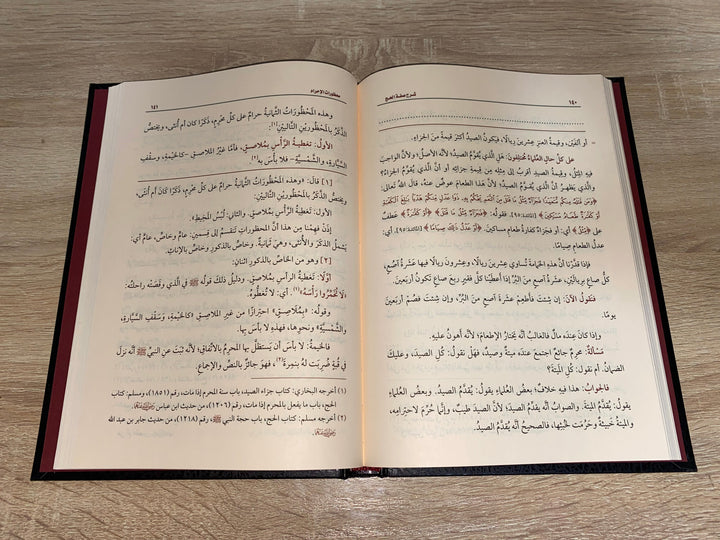 ١٤٠
شرح صفة الحج
= أو ألفين، وقيمة العنز عشرين ريالًا، فيكون الصيد أكثر قيمة من الجزاء.
على كل حال العلماء مختلفون: هل الذي يُقوَّم الصيد؛ لأنه الأصل؛ ولأن الواجب
فيه المثل؛ وقيمة الصيد أقرب إلى مثله من قيمة جزائه أو أن يُقوَّم الجزاء؟
والذي يظهر أن الذي يُقوَّم الصيد؛ لأن هذا الطعام عوض عنه. قال الله تعالى:
﴿وَمَن قَتَلَهُ مِنكُم مُّتَعَمِّدًا فَجَزَاءٌ مِّثْلُ مَا قَتَلَ مِنَ النَّعَمِ يَحْكُمُ بِهِ ذَوَا عَدْلٍ مِّنكُمْ هَدْيًا بَالِغَ الْكَعْبَةِ
أَوْ كَفَّارَةٌ طَعَامُ مَسَاكِينَ﴾ [المائدة:٩٥]. فقوله: ﴿فَجَزَاءٌ مِّثْلُ مَا قَتَلَ﴾ ﴿أَوْ كَفَّارَةٌ﴾ عطف
على ﴿مِثْلُ﴾ أي: أو فجزاؤه كفارة طعام مساكين. ﴿أَوْ عَدْلُ ذَٰلِكَ صِيَامًا﴾ [المائدة:٩٥]. أي:
عدل الطعام صيامًا.
فإذا قدرنا أن هذه الحمامة تساوي عشرين ريالًا، وعشرون ريالًا فيها عشرة آصع،
كل صاع بريالين، وعشرة الآصع من البر إذا أعطينا كل فقير ربع صاع تكون أربعين
فنقول الآن: إن شئت فأطعم عشرة آصع من البر، وإن شئت فصم أربعين
يومًا.
وإذا كان عنده مال فالغالب أنه يختار الإطعام؛ لأنه أهون عليه.
مسألة: محرم جائع اجتمع عنده ميتة وصيد، فهل نقول: كل الصيد، وعليك
الضمان. أم نقول: كل الميتة؟
فالجواب: هذا فيه خلاف؛ بعض العلماء يقول: يُقدَّم الصيد. وبعض العلماء
يقول: يُقدَّم الميتة. والصواب أنه يُقدَّم الصيد؛ لأن الصيد طيب، وإنما حُرِّم لاحترامه،
والميتة خبيثة وحُرِّمت لخبثها، فالصحيح أنه يُقدَّم الصيد.
محظورات الإحرام
١٤١
وهذه المحظورات الثمانية حرام على كل محرم، ذكرًا كان أم أنثى، ويختص
الذكر بالمحظورين التاليين[١]:
الأول: تغطية الرأس بملاصق، فأما غير الملاصق -كالخيمة، وسقف
السيارة، والشمسية- فلا بأس به[٢].
[١] قال: «وهذه المحظورات الثمانية حرام على كل محرم، ذكرًا كان أم أنثى،
ويختص الذكر بالمحظورين التاليين:
الأول: تغطية الرأس بملاصق. والثاني: لُبس المخيط».
إذًا فهمنا من هذا أن المحظورات تنقسم إلى قسمين: عام وخاص، عام أي:
يشمل الذكر والأنثى، وهي ثمانية. وخاص بالذكور وخاص بالإناث.
[٢] وهو من الخاص بالذكور اثنان:
أولًا: تغطية الرأس بملاصق. ودليل ذلك قوله ﷺ في الذي وقصته راحلته:
«لَا تُخَمِّرُوا رَأْسَهُ»(١). أي: لا تغطوه.
وقوله: «بملاصق» احترازًا من غير الملاصق «كالخيمة، وسقف السيارة،
والشمسية» ونحوها، فهذه لا بأس بها.
فالخيمة: لا بأس أن يستظل بها المحرم بالاتفاق؛ لأنه ثبت عن النبي ﷺ أنه نزل
في قبة ضُربت له بنمرة(٢)، فهو جائز بالنص والإجماع.
(١) أخرجه البخاري: كتاب جزاء الصيد، باب سنة المحرم إذا مات، رقم (١٨٥١)، ومسلم: كتاب
الحج، باب ما يفعل بالمحرم إذا مات، رقم (١٢٠٦)، من حديث ابن عباس رضي الله عنهما.
(٢) أخرجه مسلم: كتاب الحج، باب حجة النبي ﷺ، رقم (١٢١٨)، من حديث جابر بن عبد الله
رضي الله عنهما.